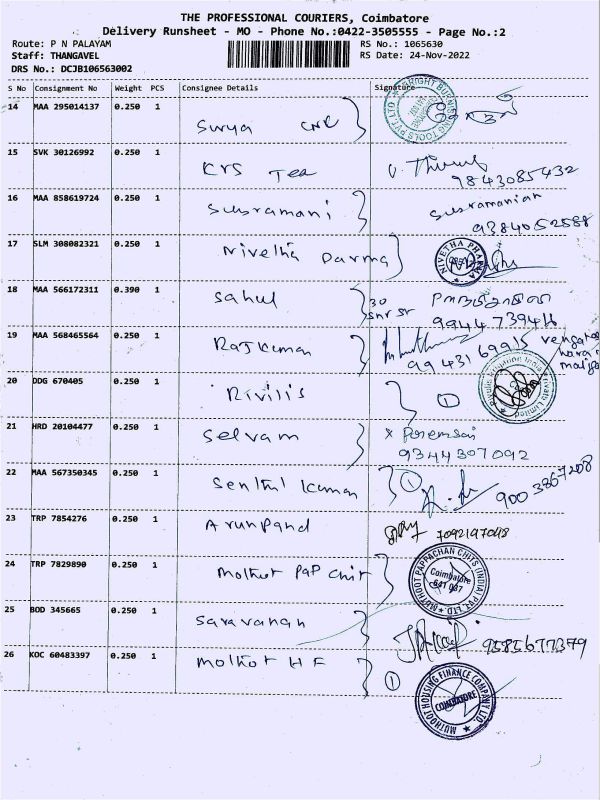 THE PROFESSIONAL COURIERS, Coimbatore
Delivery Runsheet - MO - Phone No.:0422-3505555 - Page No.:2
Route: P N PALAYAM RS No.: 1065630
Staff: THANGAVEL RS Date: 24-Nov-2022
DRS No.: DCJB106563002
S No Consignment No Weight PCS Consignee Details Signature
14 MAA 295014137 0.250 1 Surya
15 SVK 30126992 0.250 1 KRS Tea
9843085432
16 MAA 858619724 0.250 1 Subramani Subramanian
9384052588
17 SLM 308082321 0.250 1 Nivetha Parma NIVETHA PHARMA
18 MAA 566172311 0.390 1 Sahul
9944739416
19 MAA 568465564 0.250 1 Rajkumar
9943169915
20 DDG 670405 0.250 1 Rivilis 1 Rivulis Irrigation India Private Limited
21 HRD 20104477 0.250 1 Selvam x Premsai
9344307092
22 MAA 567350345 0.250 1 Senthil Kumar 1
9003867208
23 TRP 7854276 0.250 1 Arunpand 7092197048
24 TRP 7829890 0.250 1 Mothut Pap Chit MUTHOOT PAPPACHAN CHITS (INDIA) PVT. LTD.
Coimbatore
641 037
25 BOD 345665 0.250 1 Saravanan
9585677379
26 KOC 60483397 0.250 1 Mothot H F 1 MUTHOOT HOUSING FINANCE COMPANY LTD.
COIMBATORE